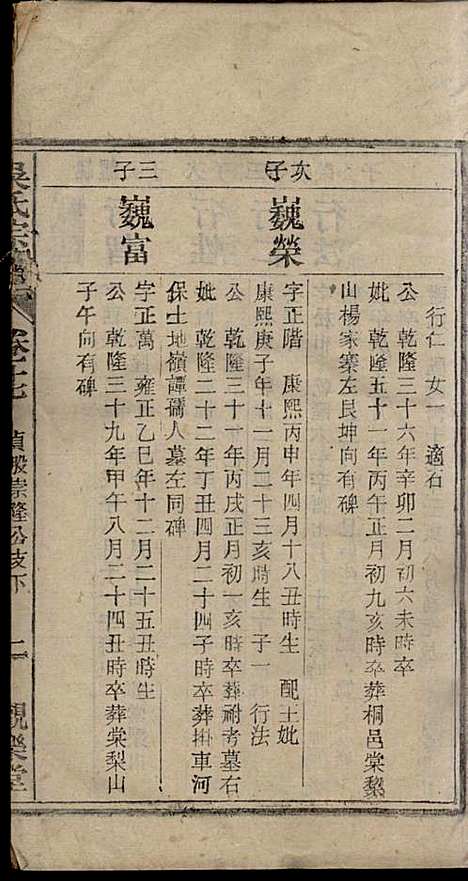 行仁 女一 適石
公 乾隆三十六年辛卯二月初六未時卒
妣 乾隆五十一年丙午正月初九亥時卒葬桐邑棠棃
山楊家寨左艮坤向有碑
次子
巍榮
字正階 康熙丙申年四月十八丑時生 配王妣
康熙庚子年十一月二十三亥時生 子一 行法
公 乾隆三十一年丙戌正月初一亥時卒葬祔考墓右
妣 乾隆二十二年丁丑四月二十四子時卒葬掛車河
保土地嶺譚孺人墓左同碑
三子
巍富
字正萬 雍正乙巳年十二月二十五丑時生
公 乾隆三十九年甲午八月二十四丑時卒葬棠梨山
子午向有碑
吳氏宗譜 卷十七 貞股崇隆公支下 二 親樂堂